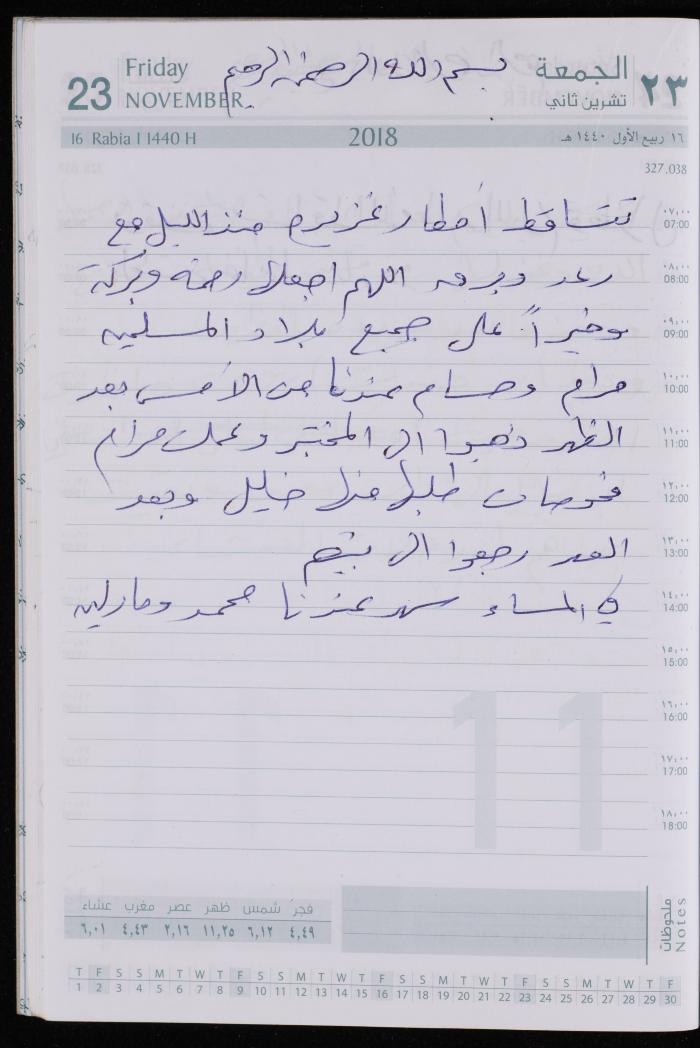 23
Friday
NOVEMBER
بسم الله الرحمن الرحيم
الجمعة
تشرين ثاني
٢٣
16 Rabia I 1440 H
2018
١٦ ربيع الأول ١٤٤٠ هـ
327.038
تتساقط أمطار غزيرة منذ الليل مع
٠٧,٠٠
07:00
رعد وبرق اللهم اجعلها رحمة وبركة
٠٨,٠٠
08:00
وخيراً على جميع بلاد المسلمين
٠٩,٠٠
09:00
مرام وحسام عندنا من الأمس بعد
١٠,٠٠
10:00
الظهر ذهبوا الى المختبر وعملت مرام
١١,٠٠
11:00
فحوصات طلبها منها خليل وبعد
١٢,٠٠
12:00
العصر رجعوا الى بيتهم
١٣,٠٠
13:00
في المساء سهر عندنا محمد ومارلين
١٤,٠٠
14:00
١٥,٠٠
15:00
١٦,٠٠
16:00
١٧,٠٠
17:00
١٨,٠٠
18:00
11
فجر شمس ظهر عصر مغرب عشاء
٤,٤٩ ٦,١٢ ١١,٢٥ ٢,١٦ ٤,٤٣ ٦,٠١
ملحوظات
Notes
T F S S M T W T F S S M T W T F S S M T W T F S S M T W T F
1 2 3 4 5 6 7 8 9 10 11 12 13 14 15 16 17 18 19 20 21 22 23 24 25 26 27 28 29 30